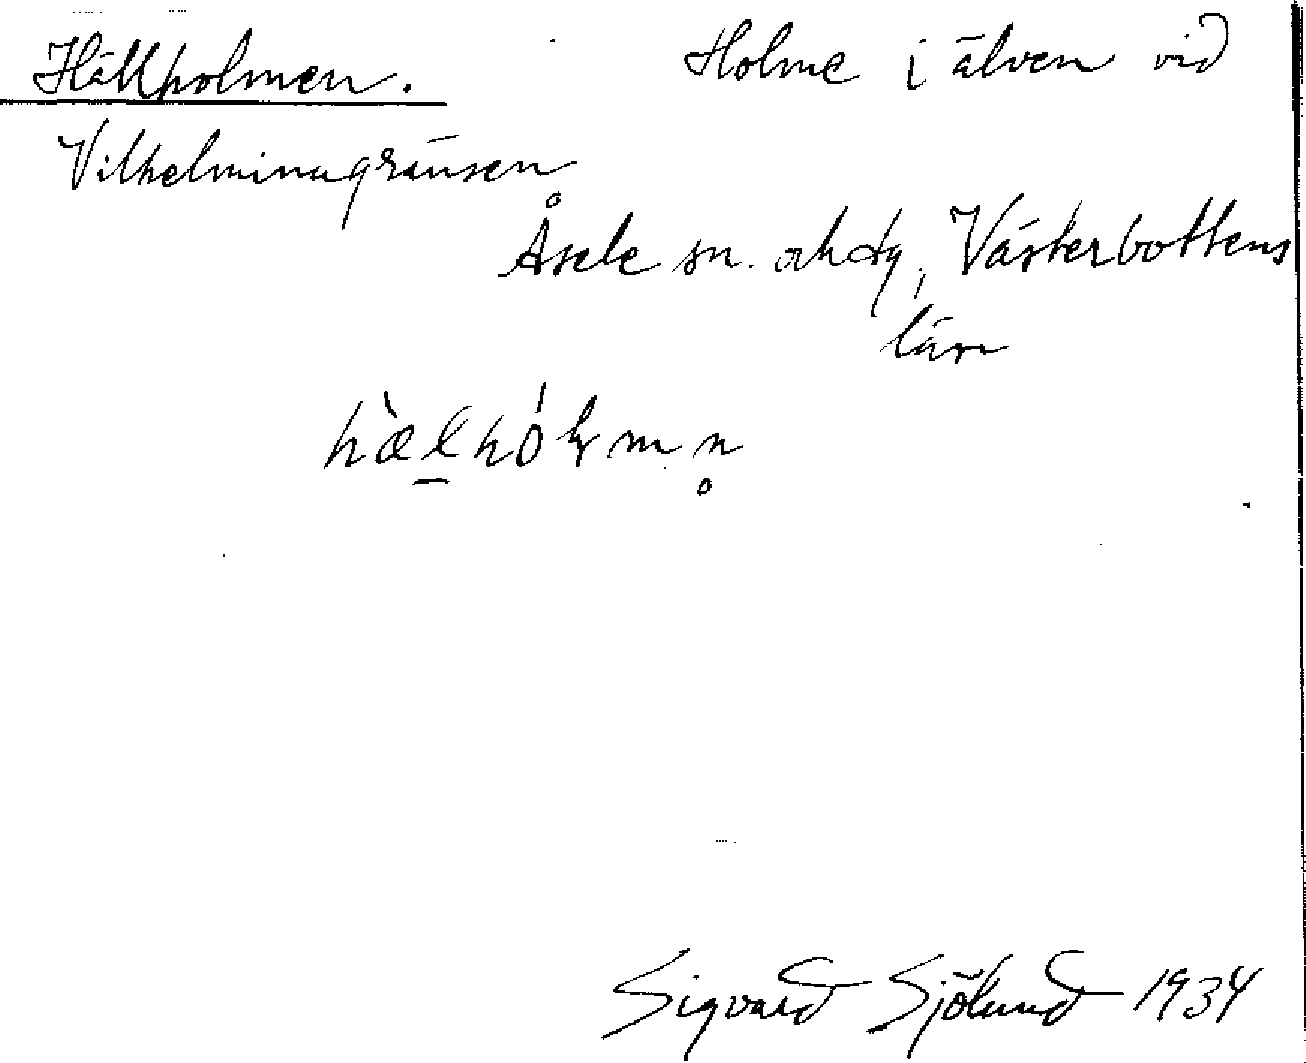 Hällholmen. Holme i älven vid
Vilhelminagränsen
Åsele sn. och tg, Västerbottens
län
hæ̀l̲hólmn̥
Sigvard Sjölund 1934